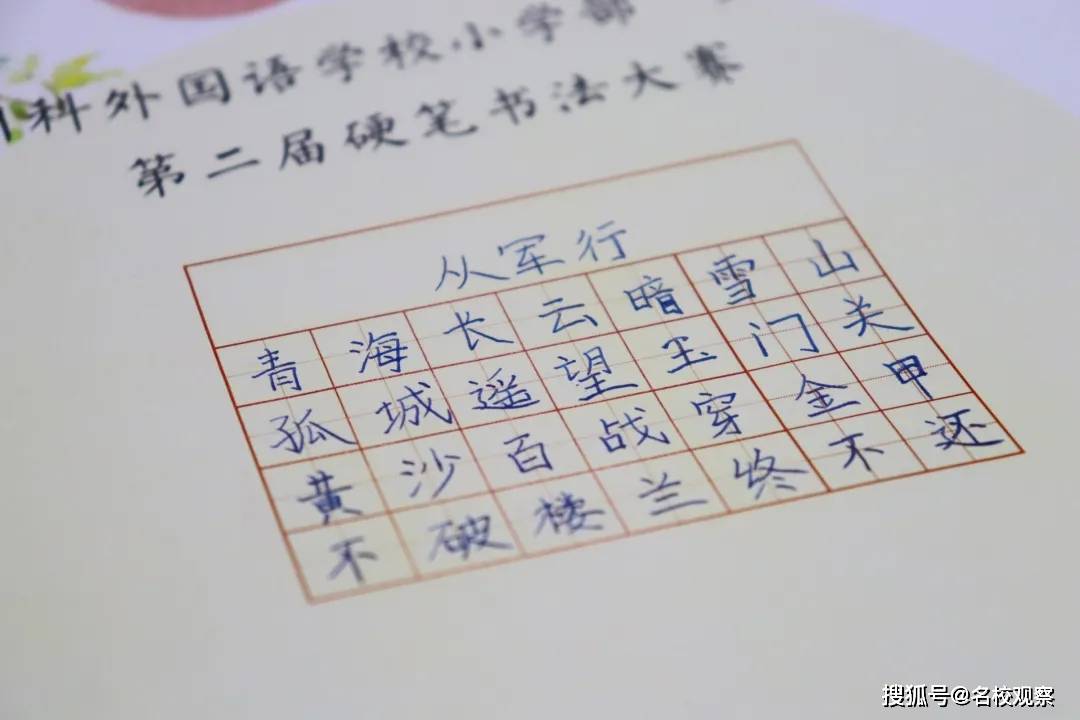 科外国语学校小学部
第二届硬笔书法大赛
从军行
青海长云暗雪山
孤城遥望玉门关
黄沙百战穿金甲
不破楼兰终不还
搜狐号@名校观察